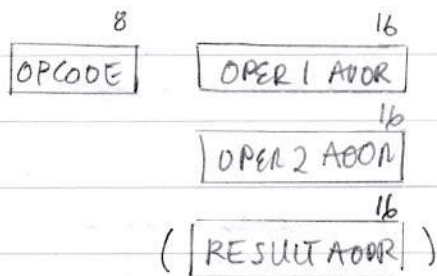 8 16
OPCODE OPER 1 ADDR
16
OPER 2 ADDR
16
( RESULT ADDR )